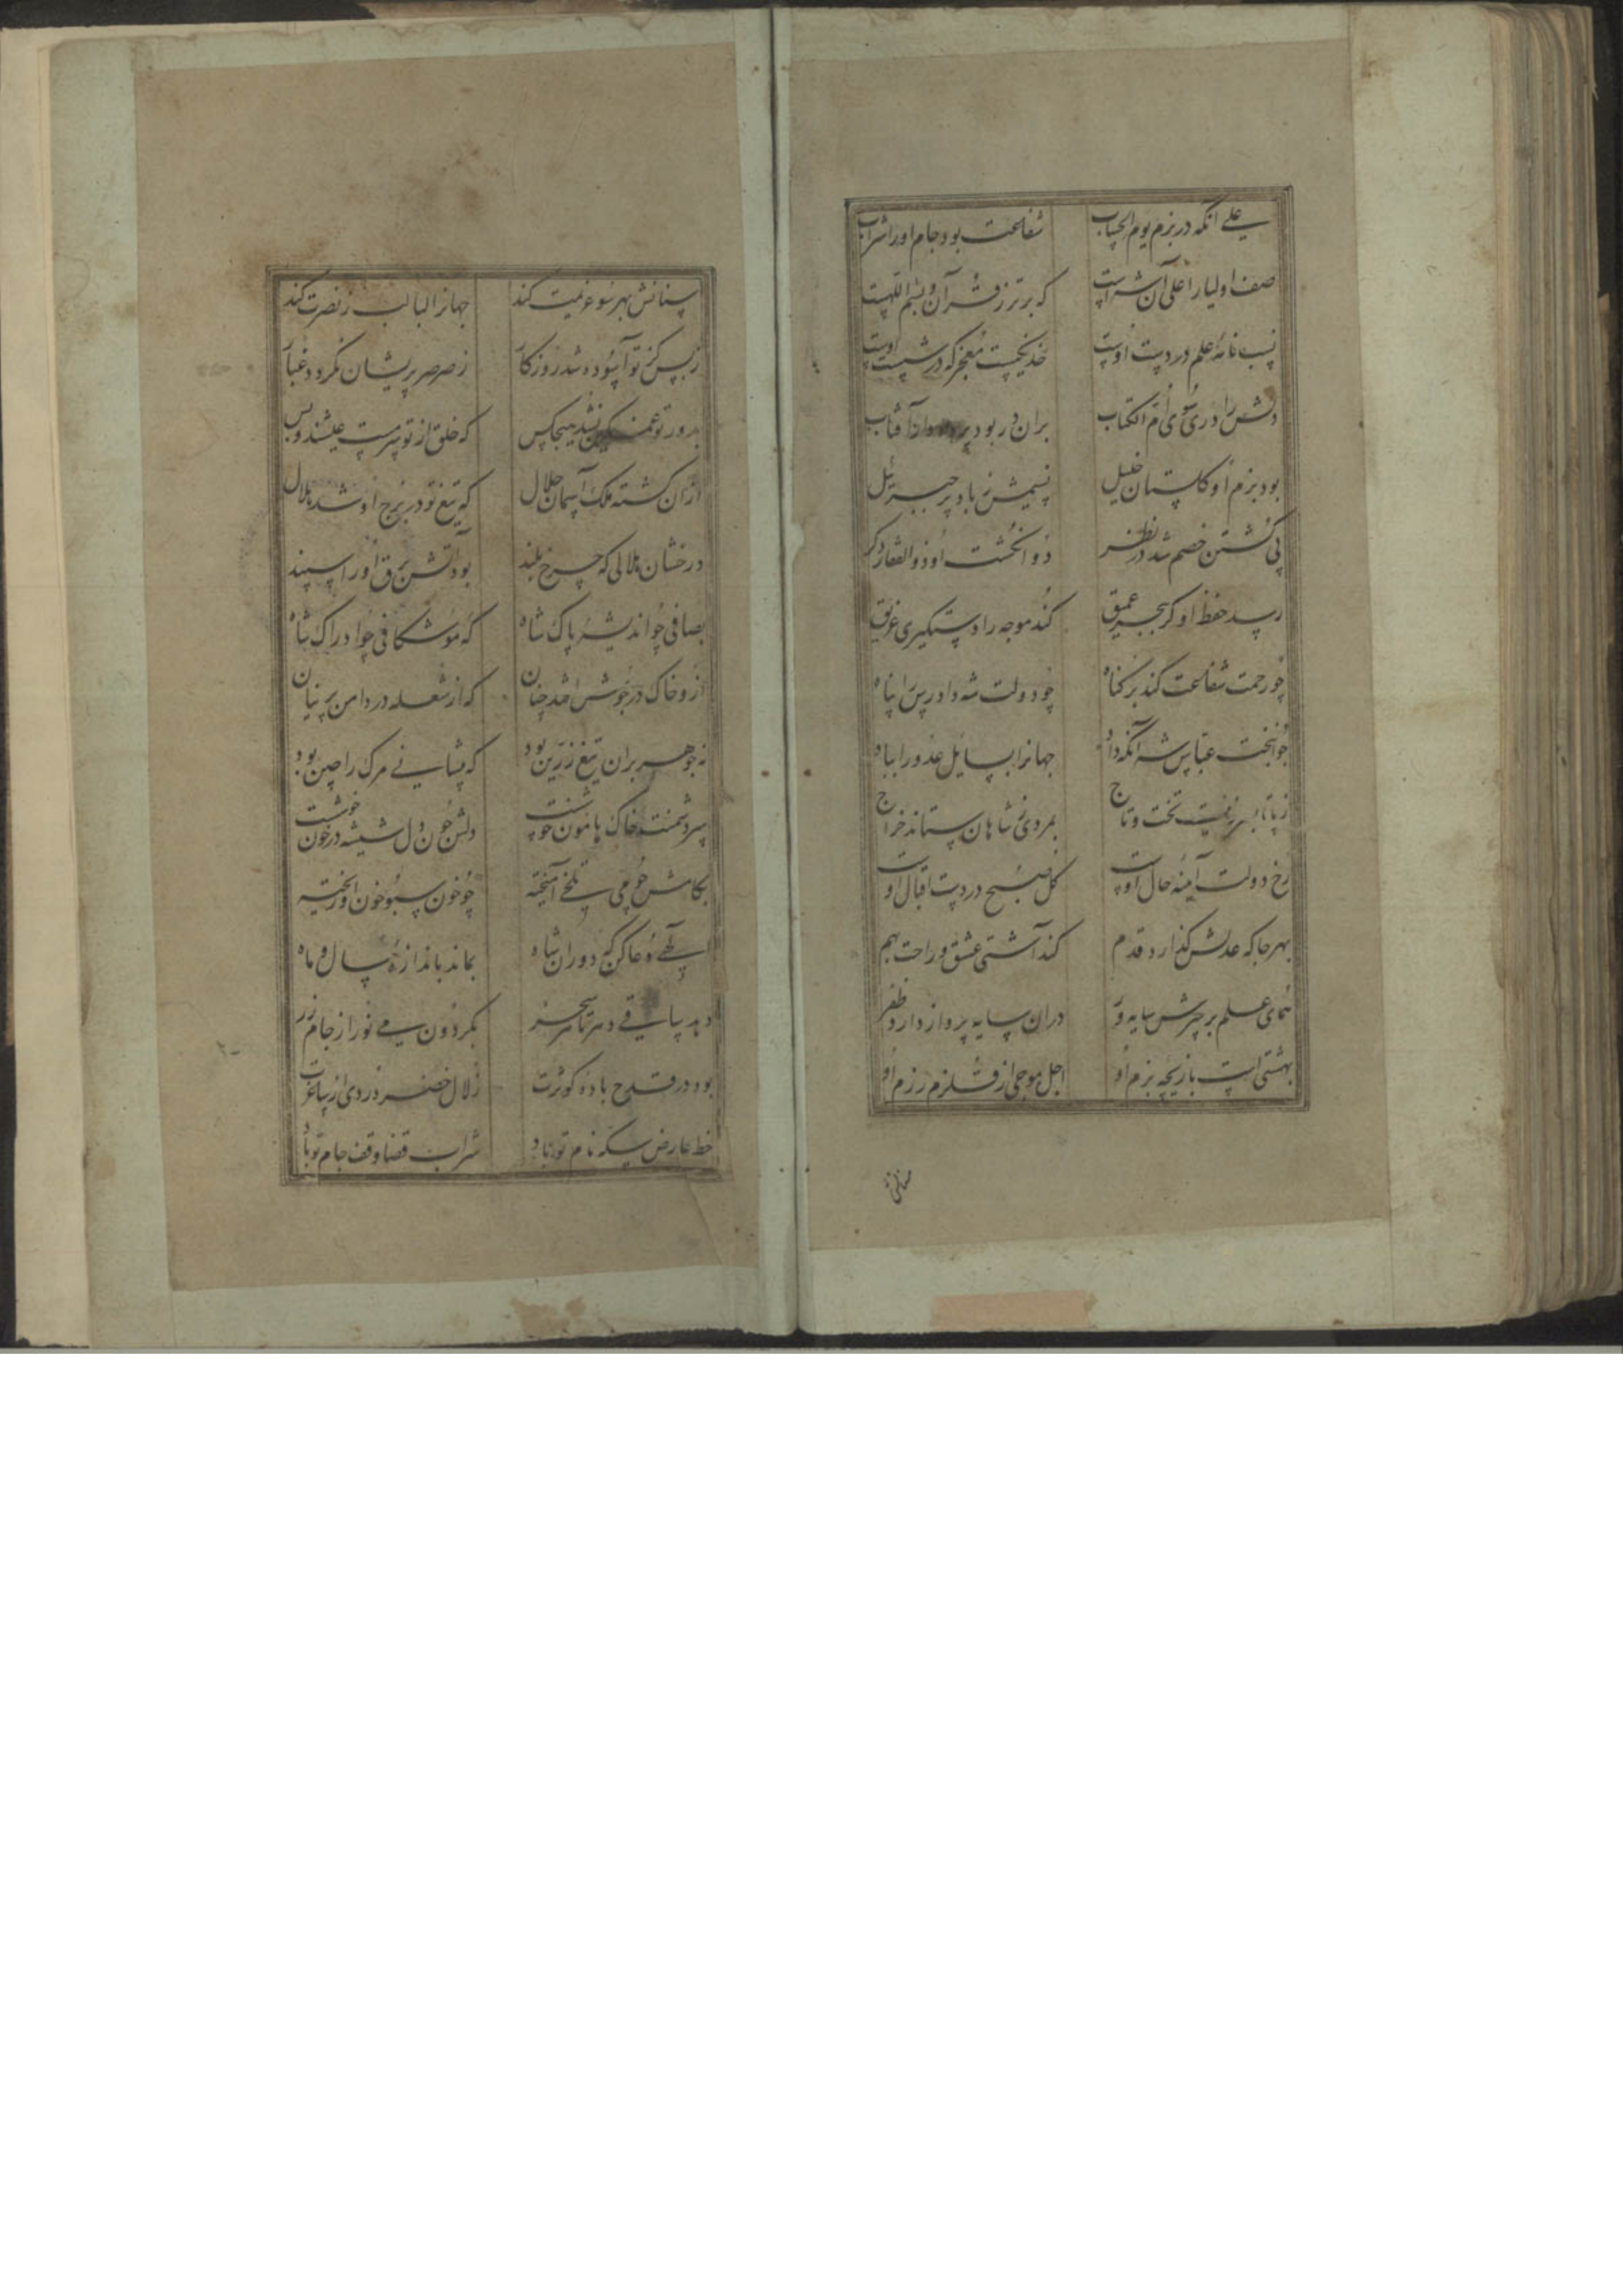 علی انکه در بزم یوم الحساب شفاعت بود جام او را شراب
صف اولیا را علی آن سراست که برتر ز قرآن و بسم اللهست
نسب نامهٔ علم در دست اوست خدنکیست معجز که در شست اوست
دلش را دری سوی ام الکتاب بران در بود پرده آفتاب
بود بزم او کلستان خلیل نسیمش ز باد پر جبرئیل
پی کشتن خصم شد در نظر دو انکشت او ذوالفقار دکر
رسد حفظ او کر ببحر عمیق کند موجه را دستکیری غریق
چو رحمت شفاعت کند بر کناه چو دولت شه دادرس را پناه
جوانبخت عباس شه آنکه داد جهانرا بسایل عدو را بباد
ز پا تا بسر زینت تخت و تاج بمردی ز شاهان ستاند خراج
رخ دولت آینه حال اوست کل صبح در دست اقبال اوست
بهر جا که عدلش کذارد قدم کند آشتی عشق و راحت بهم
همای علم بر چترش سایه ور دران سایه پرواز دارد ظفر
بهشتی است بازیچه بزم او اجل موجی از قلزم رزم او
سنانش
سنانش بهر سو عزیمت کند جهانرا لبالب ز نصرت کند
ز بس کز تو آسوده شد روزکار ز صرصر پریشان نکردد غبار
بدور تو غمکین نشد هیچکس که خلق از تو سرمست عیشند و بس
ازان کشته ملک آسمان جلال که تیغ تو در برج او شد هلال
درخشان هلالی که چرخ بلند بود آتش برق او را سپند
بصافی چو اندیشهٔ پاک شاه که موشکافی چو ادراک شاه
ازو خاک در جوش افتد چنان که از شعله در دامن پرنیان
نه جوهر بران تیغ زرین بود که پیشانی مرک را چین بود
سر دشمنت خاک هامون خوشست دلش چون دل شیشه در خون خوشست
بکامش چو می تلخی آمیخته چو خون سبو خون او ریخته
الهی دعا کن که دوران شاه بماند باندازهٔ سال و ماه
دهد ساقی دهر تا سحر بکردون می نور از جام زر
بود در قدح باده کوثرت زلال خضر دردی از ساغرت
خط عارض سکه نام تو باد شراب قضا وقف جام تو باد